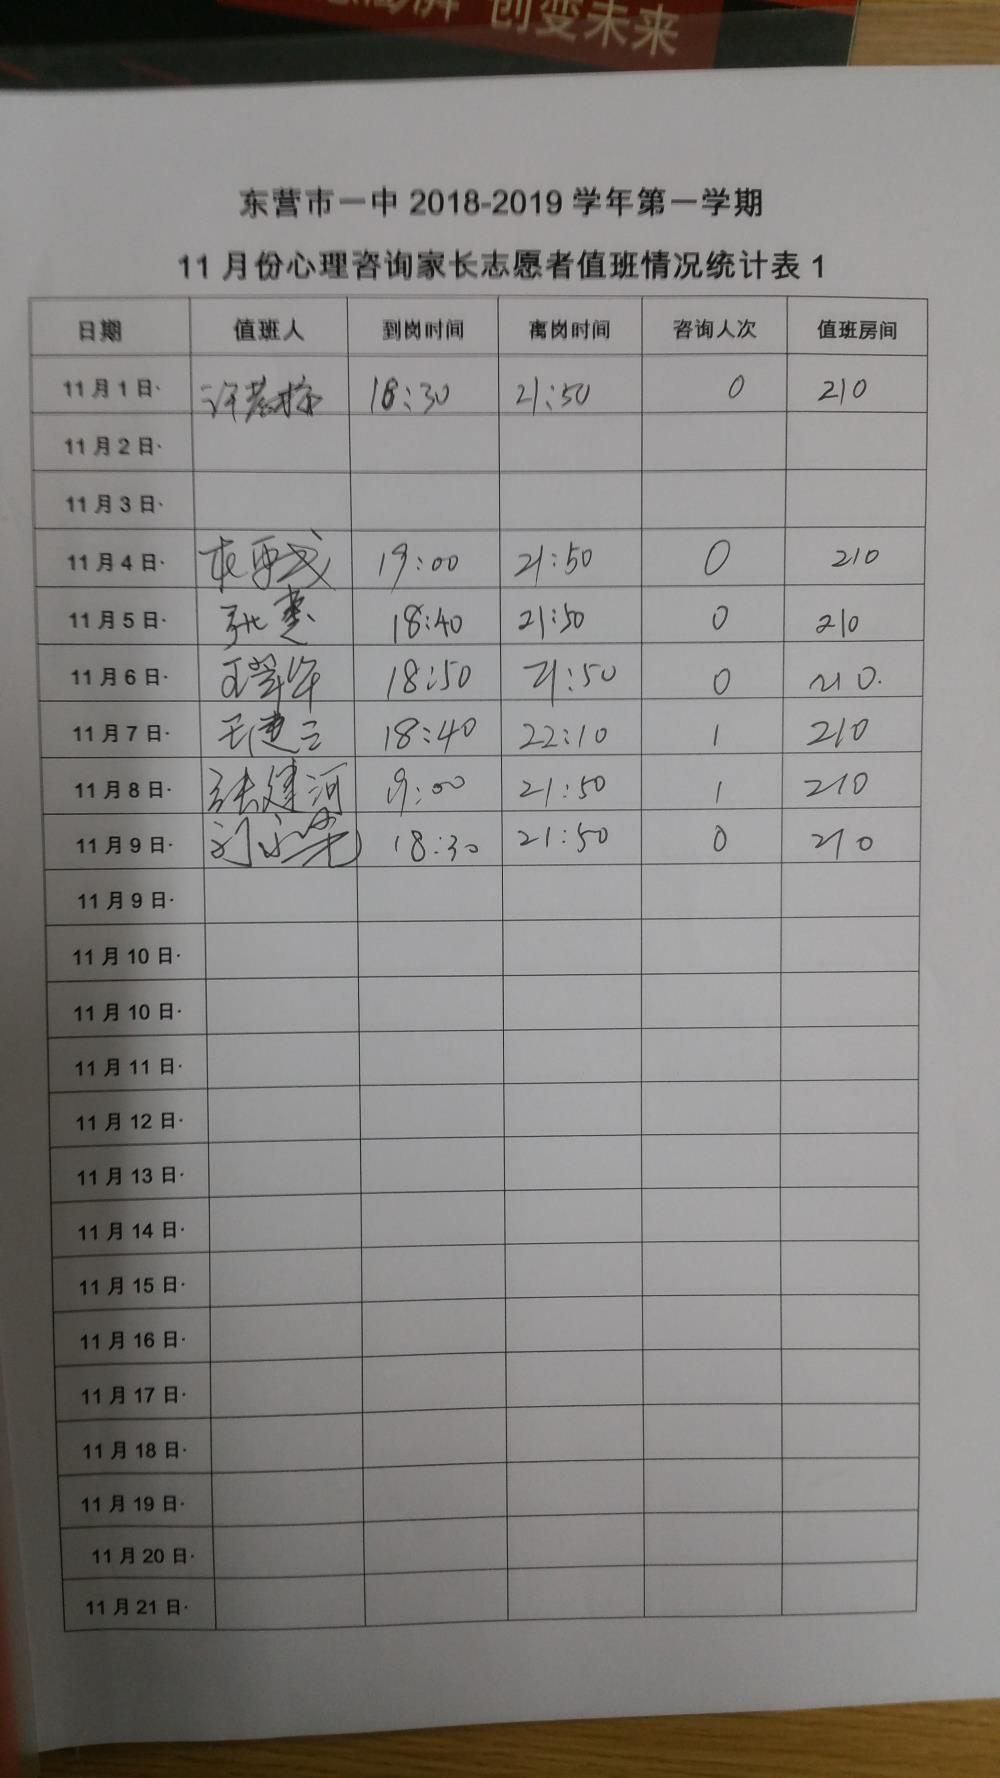 创变未来
东营市一中 2018-2019 学年第一学期
11 月份心理咨询家长志愿者值班情况统计表 1
日期 值班人 到岗时间 离岗时间 咨询人次 值班房间
11 月 1 日· 18:30 21:50 0 210
11 月 2 日·
11 月 3 日·
11 月 4 日· 19:00 21:50 0 210
11 月 5 日· 张惠 18:40 21:50 0 210
11 月 6 日· 18:50 21:50 0 210.
11 月 7 日· 王建三 18:40 22:10 1 210
11 月 8 日· 张建河 19:00 21:50 1 210
11 月 9 日· 刘永荣 18:30 21:50 0 210
11 月 9 日·
11 月 10 日·
11 月 10 日·
11 月 11 日·
11 月 12 日·
11 月 13 日·
11 月 14 日·
11 月 15 日·
11 月 16 日·
11 月 17 日·
11 月 18 日·
11 月 19 日·
11 月 20 日·
11 月 21 日·